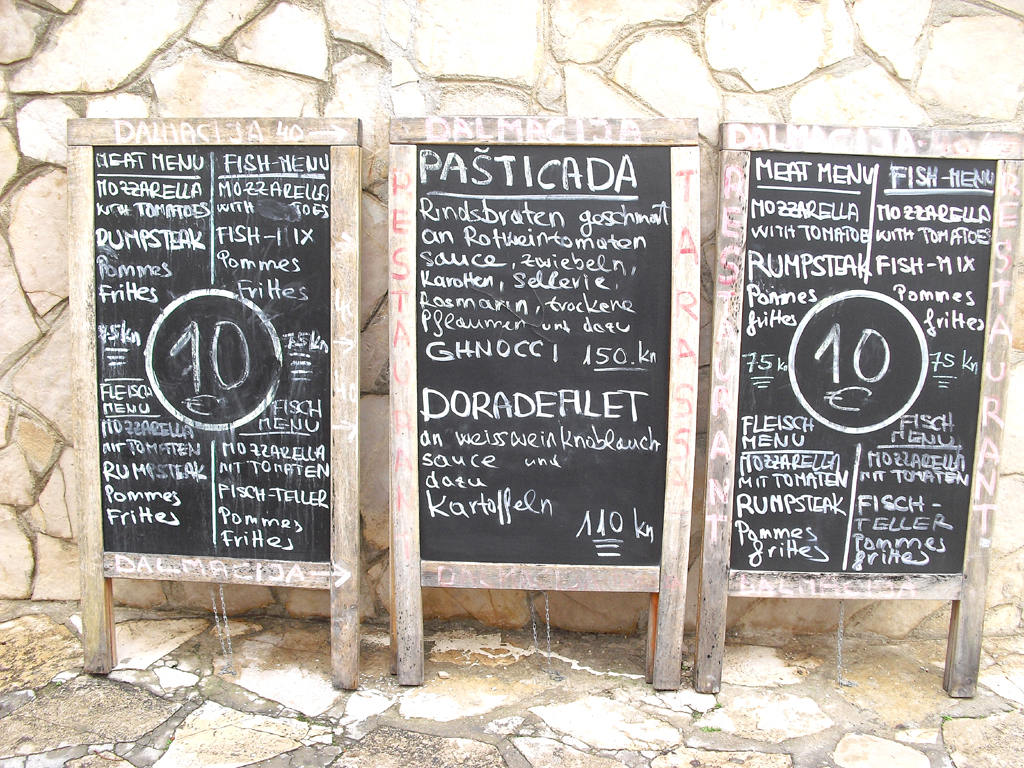 DALMACIJA 40 →
MEAT MENU
MOZZARELLA
WITH TOMATOES
RUMPSTEAK
Pommes
Frittes
75kn
FISH-MENU
MOZZARELLA
WITH TOES
FISH-MIX
Pommes
Frittes
75kn
10
€
FLEISCH
MENU
MOZZARELLA
MIT TOMATEN
RUMPSTEAK
Pommes
Frittes
FISCH
MENU
MOZZARELLA
MIT TOMATEN
FISCH-TELLER
Pommes
Frittes
DALMACIJA →
DALMACIJA
RESTAURANT
PAŠTICADA
Rindsbraten geschmort
an Rotweintomaten
sauce, zwiebeln,
Karotten, Sellerie,
Rosmarin, trockene
Pflaumen und dazu
GHNOCCI 150.kn
DORADEFILET
an weissweinknoblauch
sauce und
dazu
Kartoffeln
110 kn
DALMACIJA
DALMACIJA
RESTAURANT
MEAT MENU
MOZZARELLA
WITH TOMATOE
RUMPSTEAK
Pommes
frittes
75 kn
FISH-MENU
MOZZARELLA
WITH TOMATOES
FISH-MIX
Pommes
frittes
75 kn
10
€
FLEISCH
MENU
MOZZARELLA
MIT TOMATEN
RUMPSTEAK
Pommes
frittes
FISCH
MENU
MOZZARELLA
MIT TOMATEN
FISCH-
TELLER
Pommes
frittes
RESTAURANT
DALMACIJA